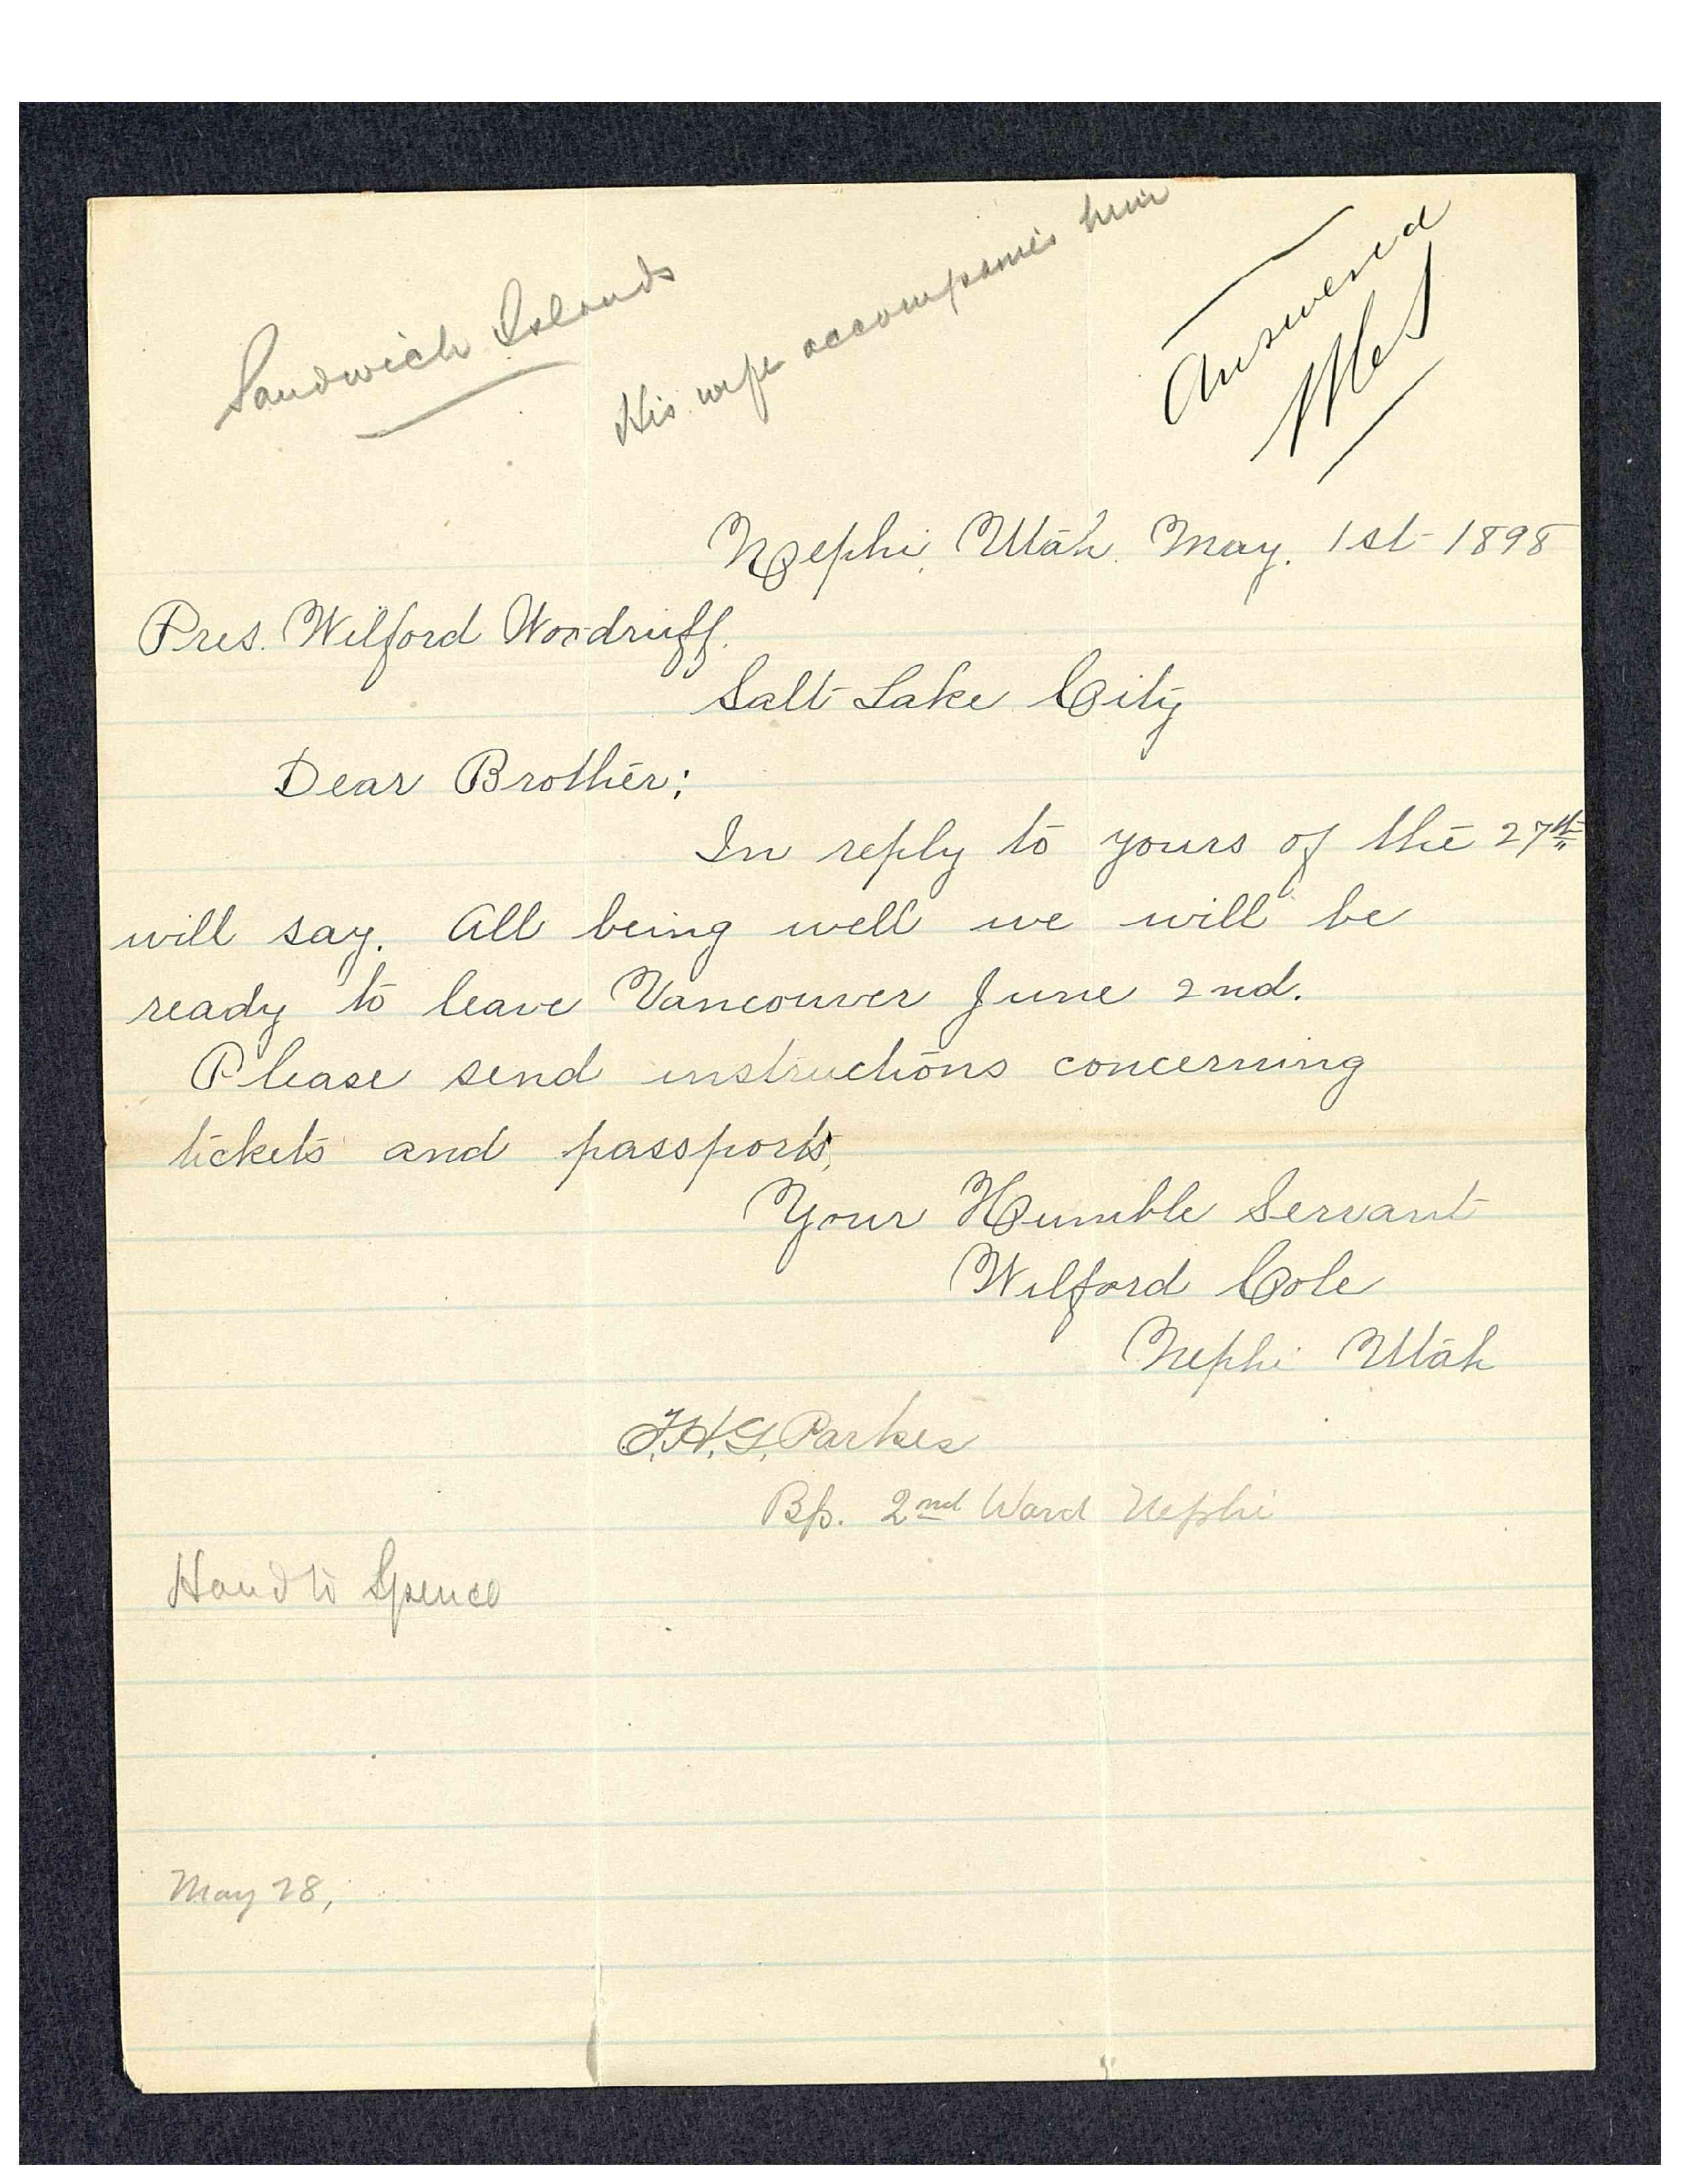 Sandwich Islands
His wife accompanies him
Answered
Nephi, Utah. May. 1st 1898
Pres. Wilford Woodruff.
Salt Lake City
Dear Brother;
In reply to yours of the 27th
will say. All being well we will be
ready to leave Vancouver June 2nd.
Please send instructions concerning
tickets and passports,
Your Humble Servant
Wilford Cole
Nephi Utah
T.H.G. Parkes
Bp. 2nd Ward Nephi
Hand to Spence
May 28,